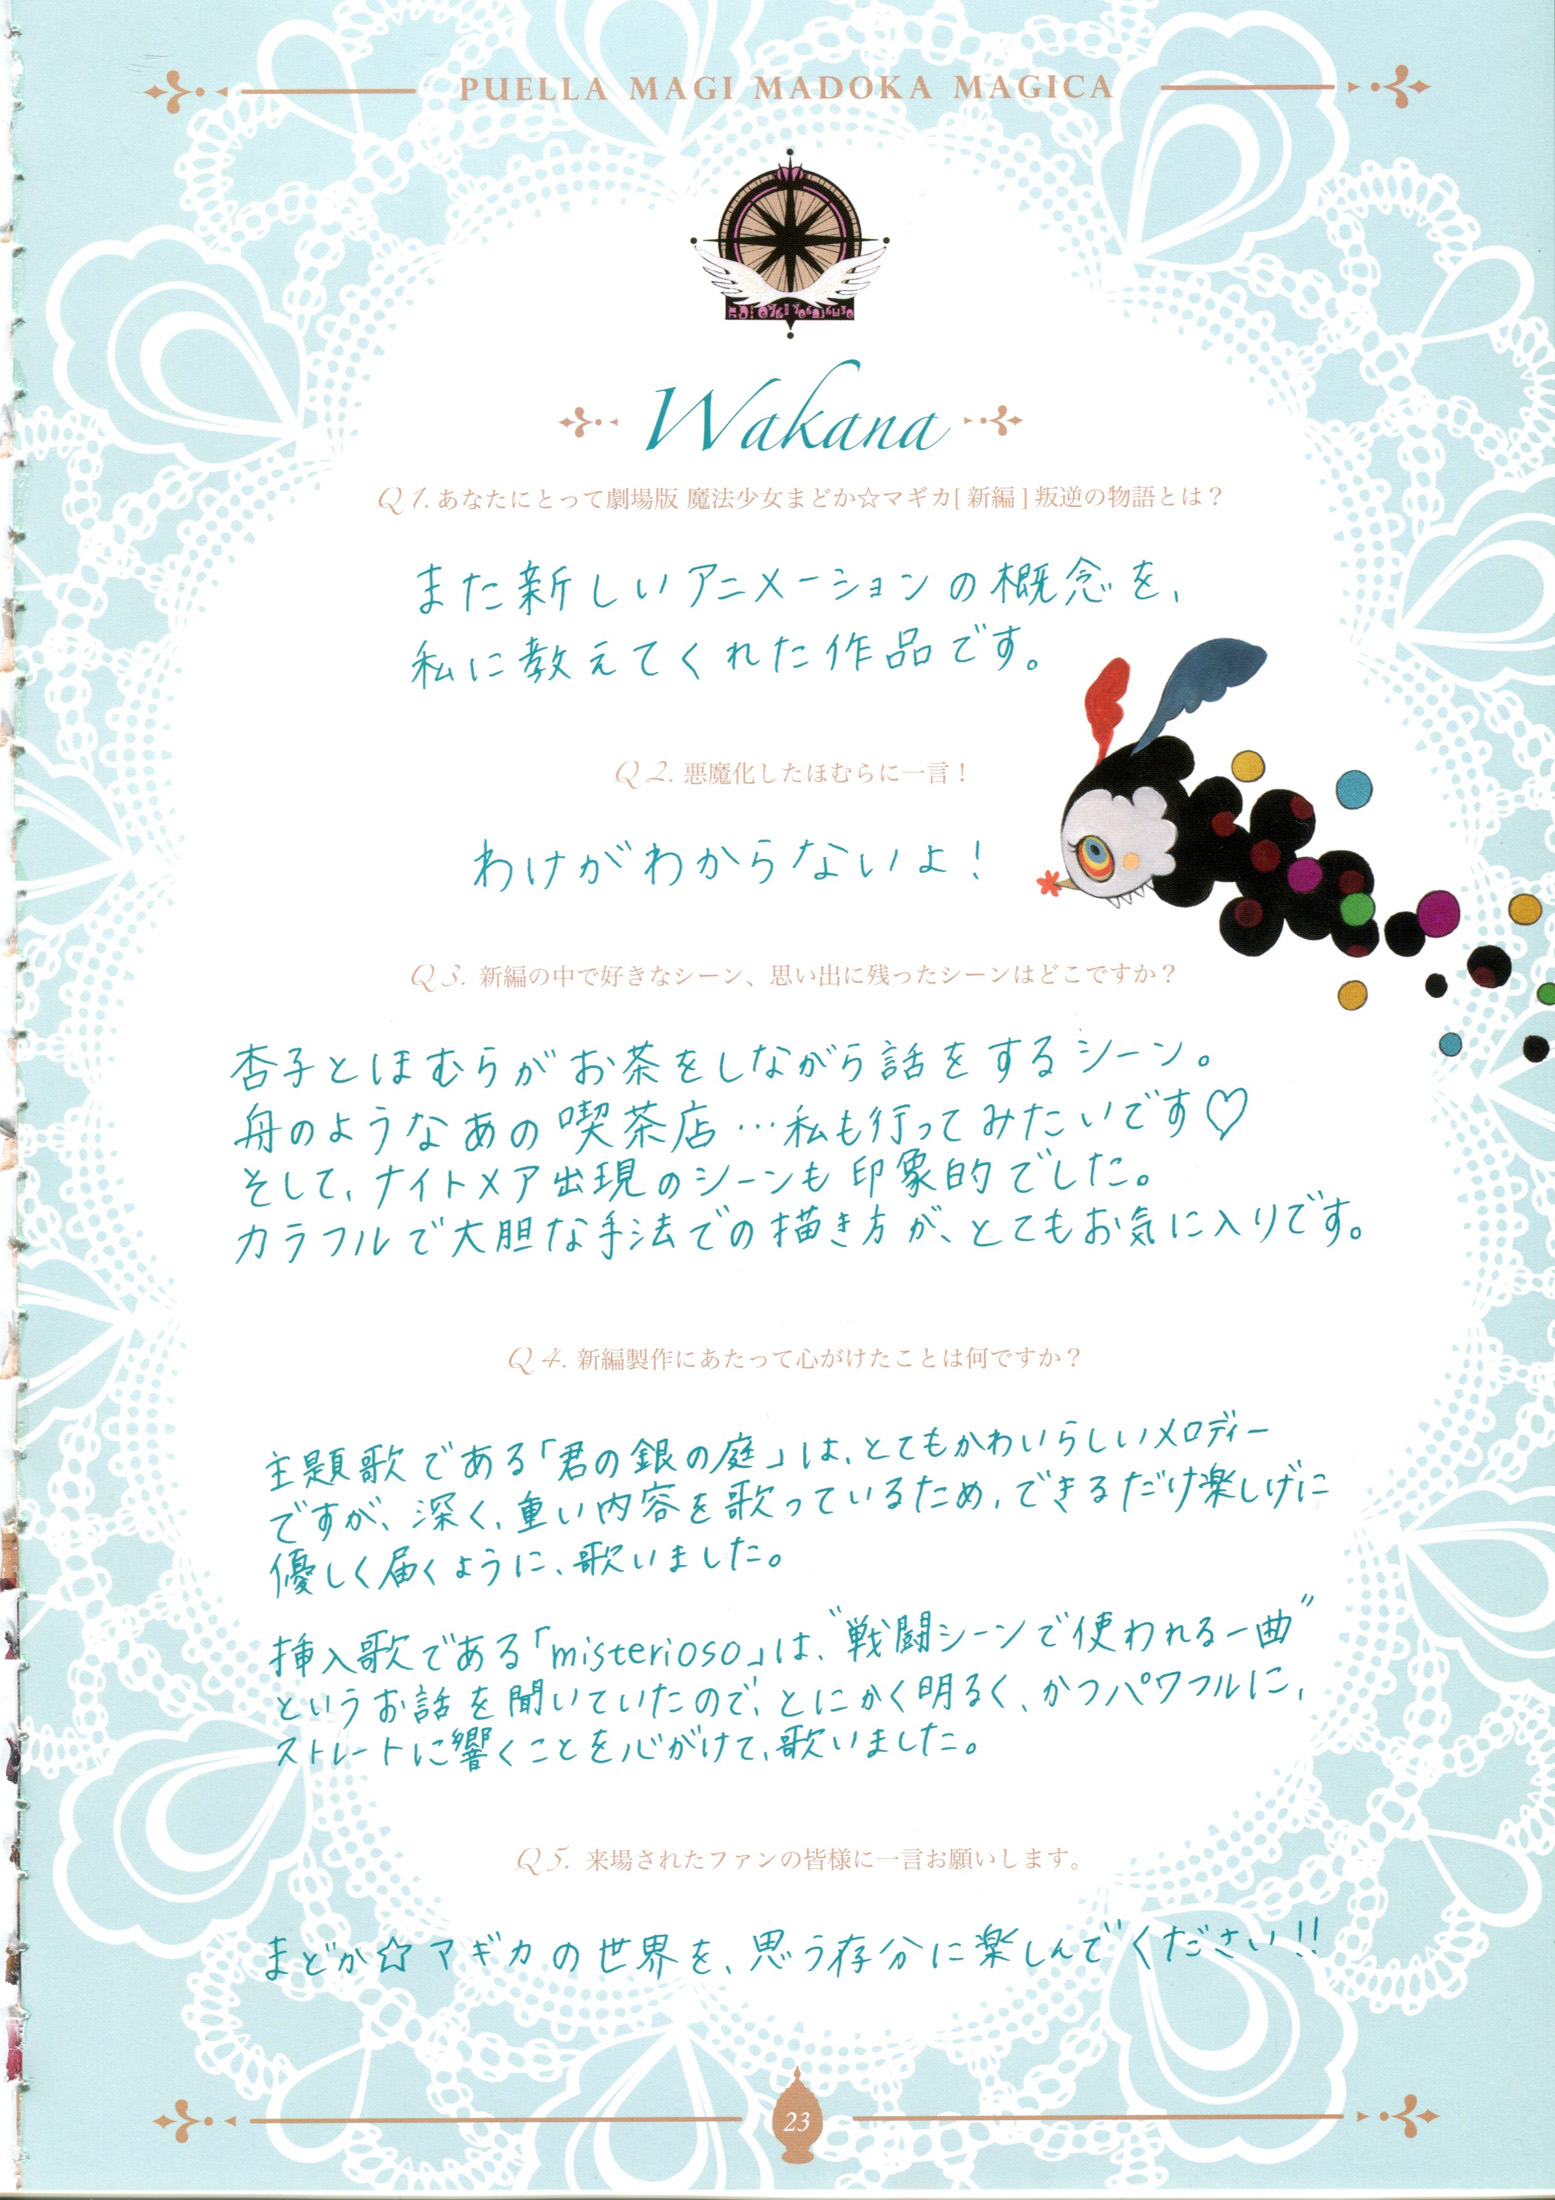 PUELLA MAGI MADOKA MAGICA
Wakana
Q1. あなたにとって劇場版 魔法少女まどか☆マギカ[ 新編 ] 叛逆の物語とは？
また新しいアニメーションの概念を、
私に教えてくれた作品です。
Q2. 悪魔化したほむらに一言！
わけがわからないよ！
Q3. 新編の中で好きなシーン、思い出に残ったシーンはどこですか？
杏子とほむらがお茶をしながら話をするシーン。
舟のようなあの喫茶店…私も行ってみたいです♡
そして、ナイトメア出現のシーンも印象的でした。
カラフルで大胆な手法での描き方が、とてもお気に入りです。
Q4. 新編製作にあたって心がけたことは何ですか？
主題歌である「君の銀の庭」は、とてもかわいらしいメロディー
ですが、深く、重い内容を歌っているため、できるだけ楽しげに
優しく届くように、歌いました。
挿入歌である「misterioso」は、"戦闘シーンで使われる一曲"
というお話を聞いていたので、とにかく明るく、かつパワフルに、
ストレートに響くことを心がけて、歌いました。
Q5. 来場されたファンの皆様に一言お願いします。
まどか☆マギカの世界を、思う存分に楽しんでください!!
23